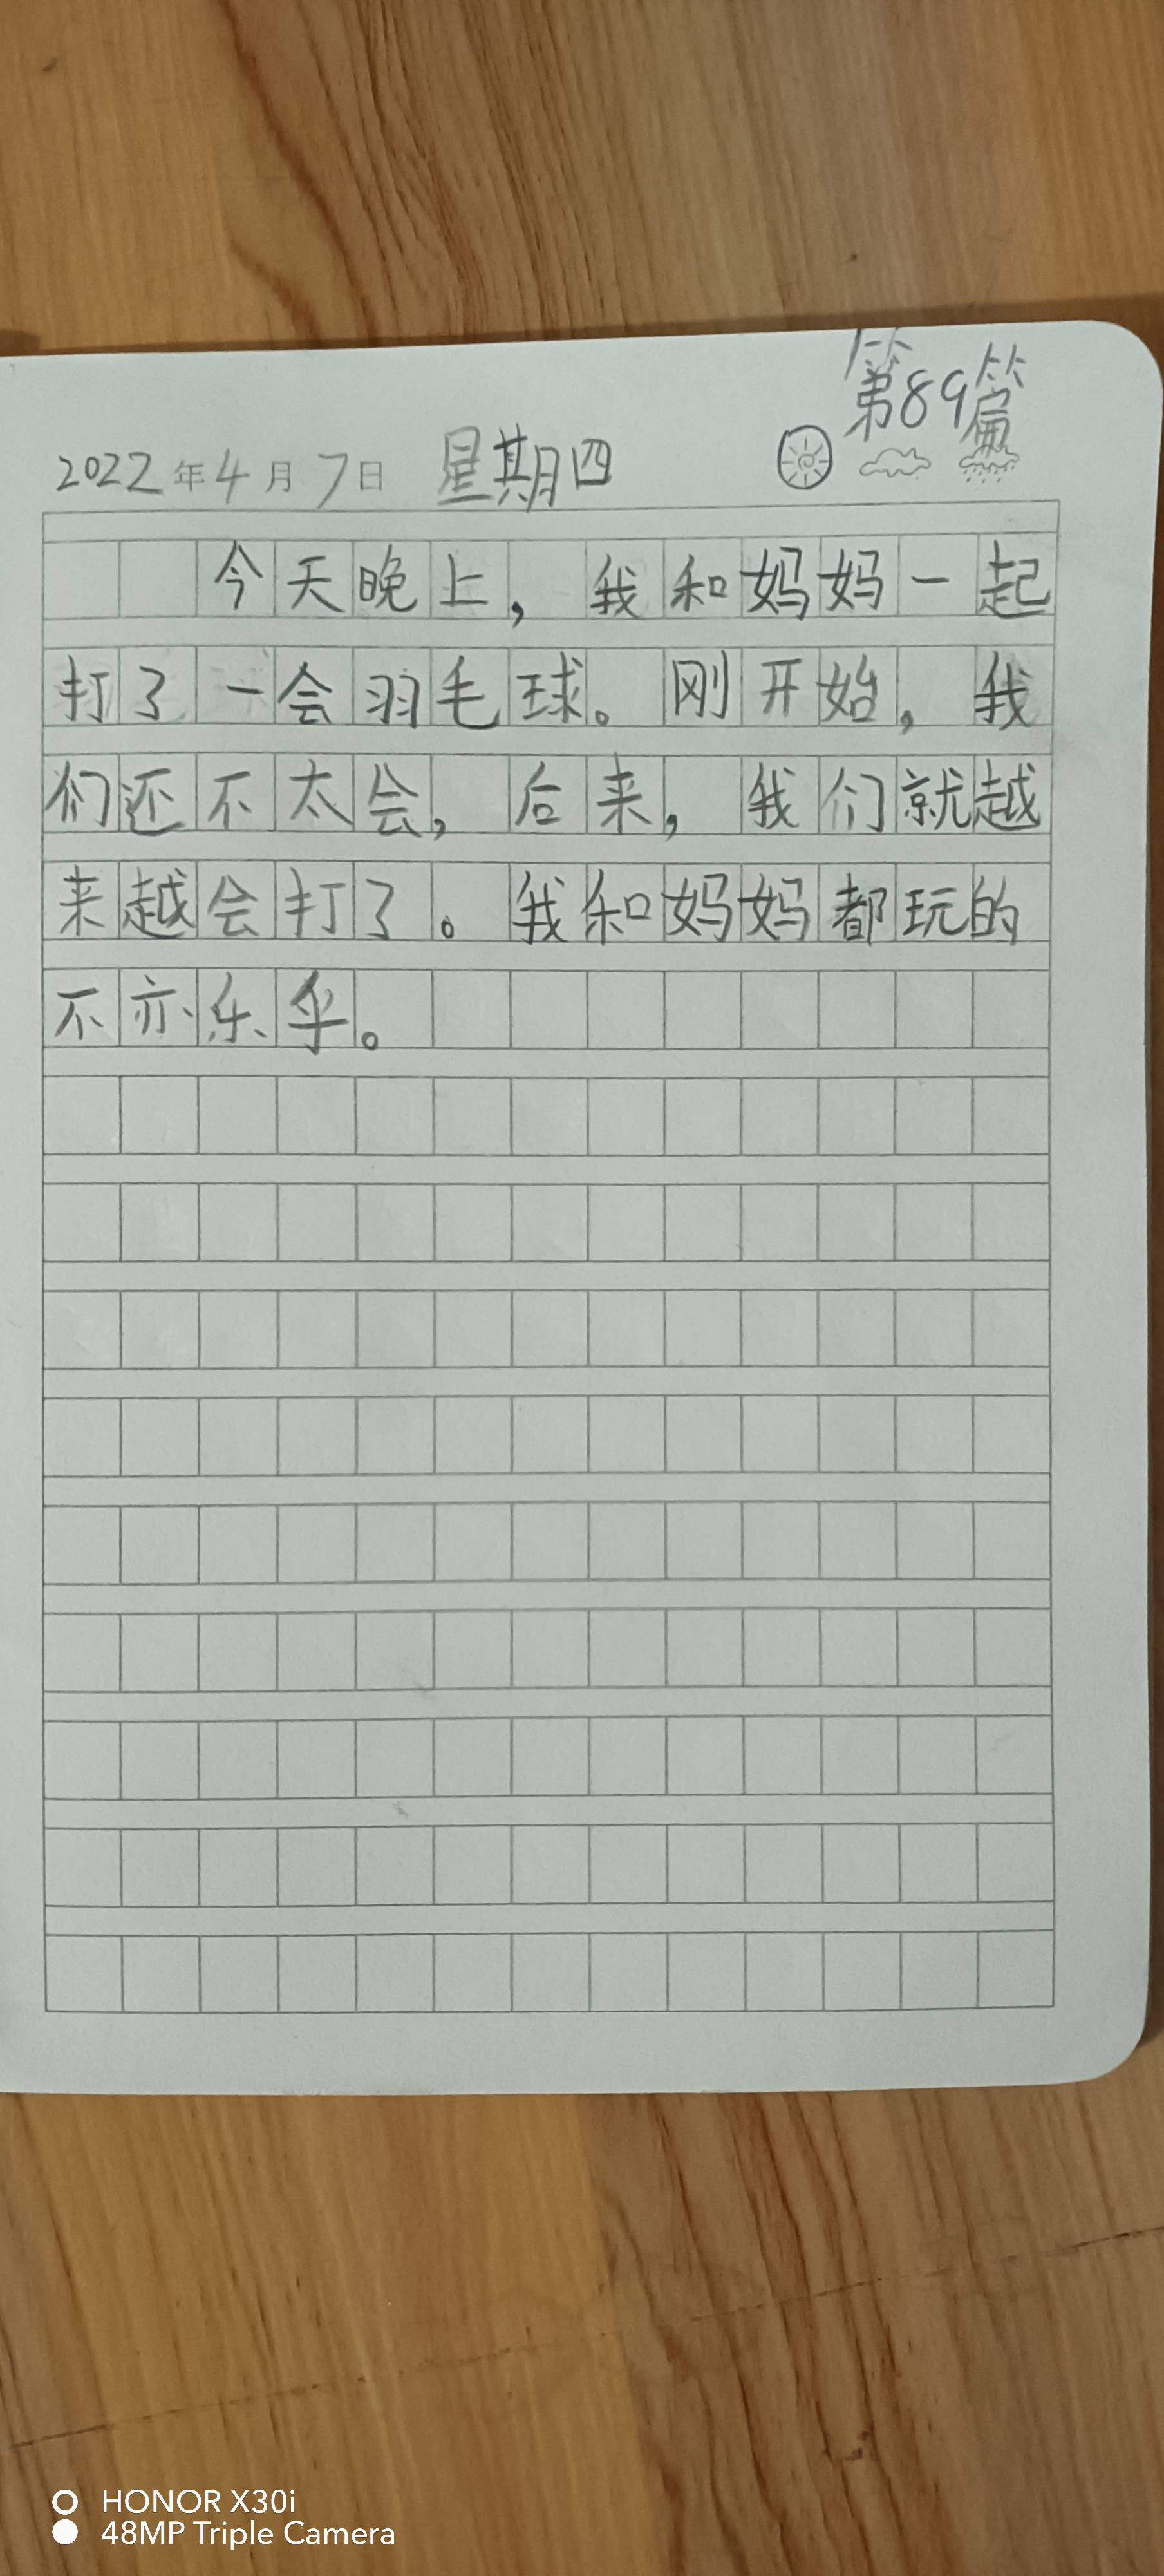 第89篇
2022年4月7日 星期四
今天晚上，我和妈妈一起
打了一会羽毛球。刚开始，我
们还不太会，后来，我们就越
来越会打了。我和妈妈都玩的
不亦乐乎。
HONOR X30i
48MP Triple Camera